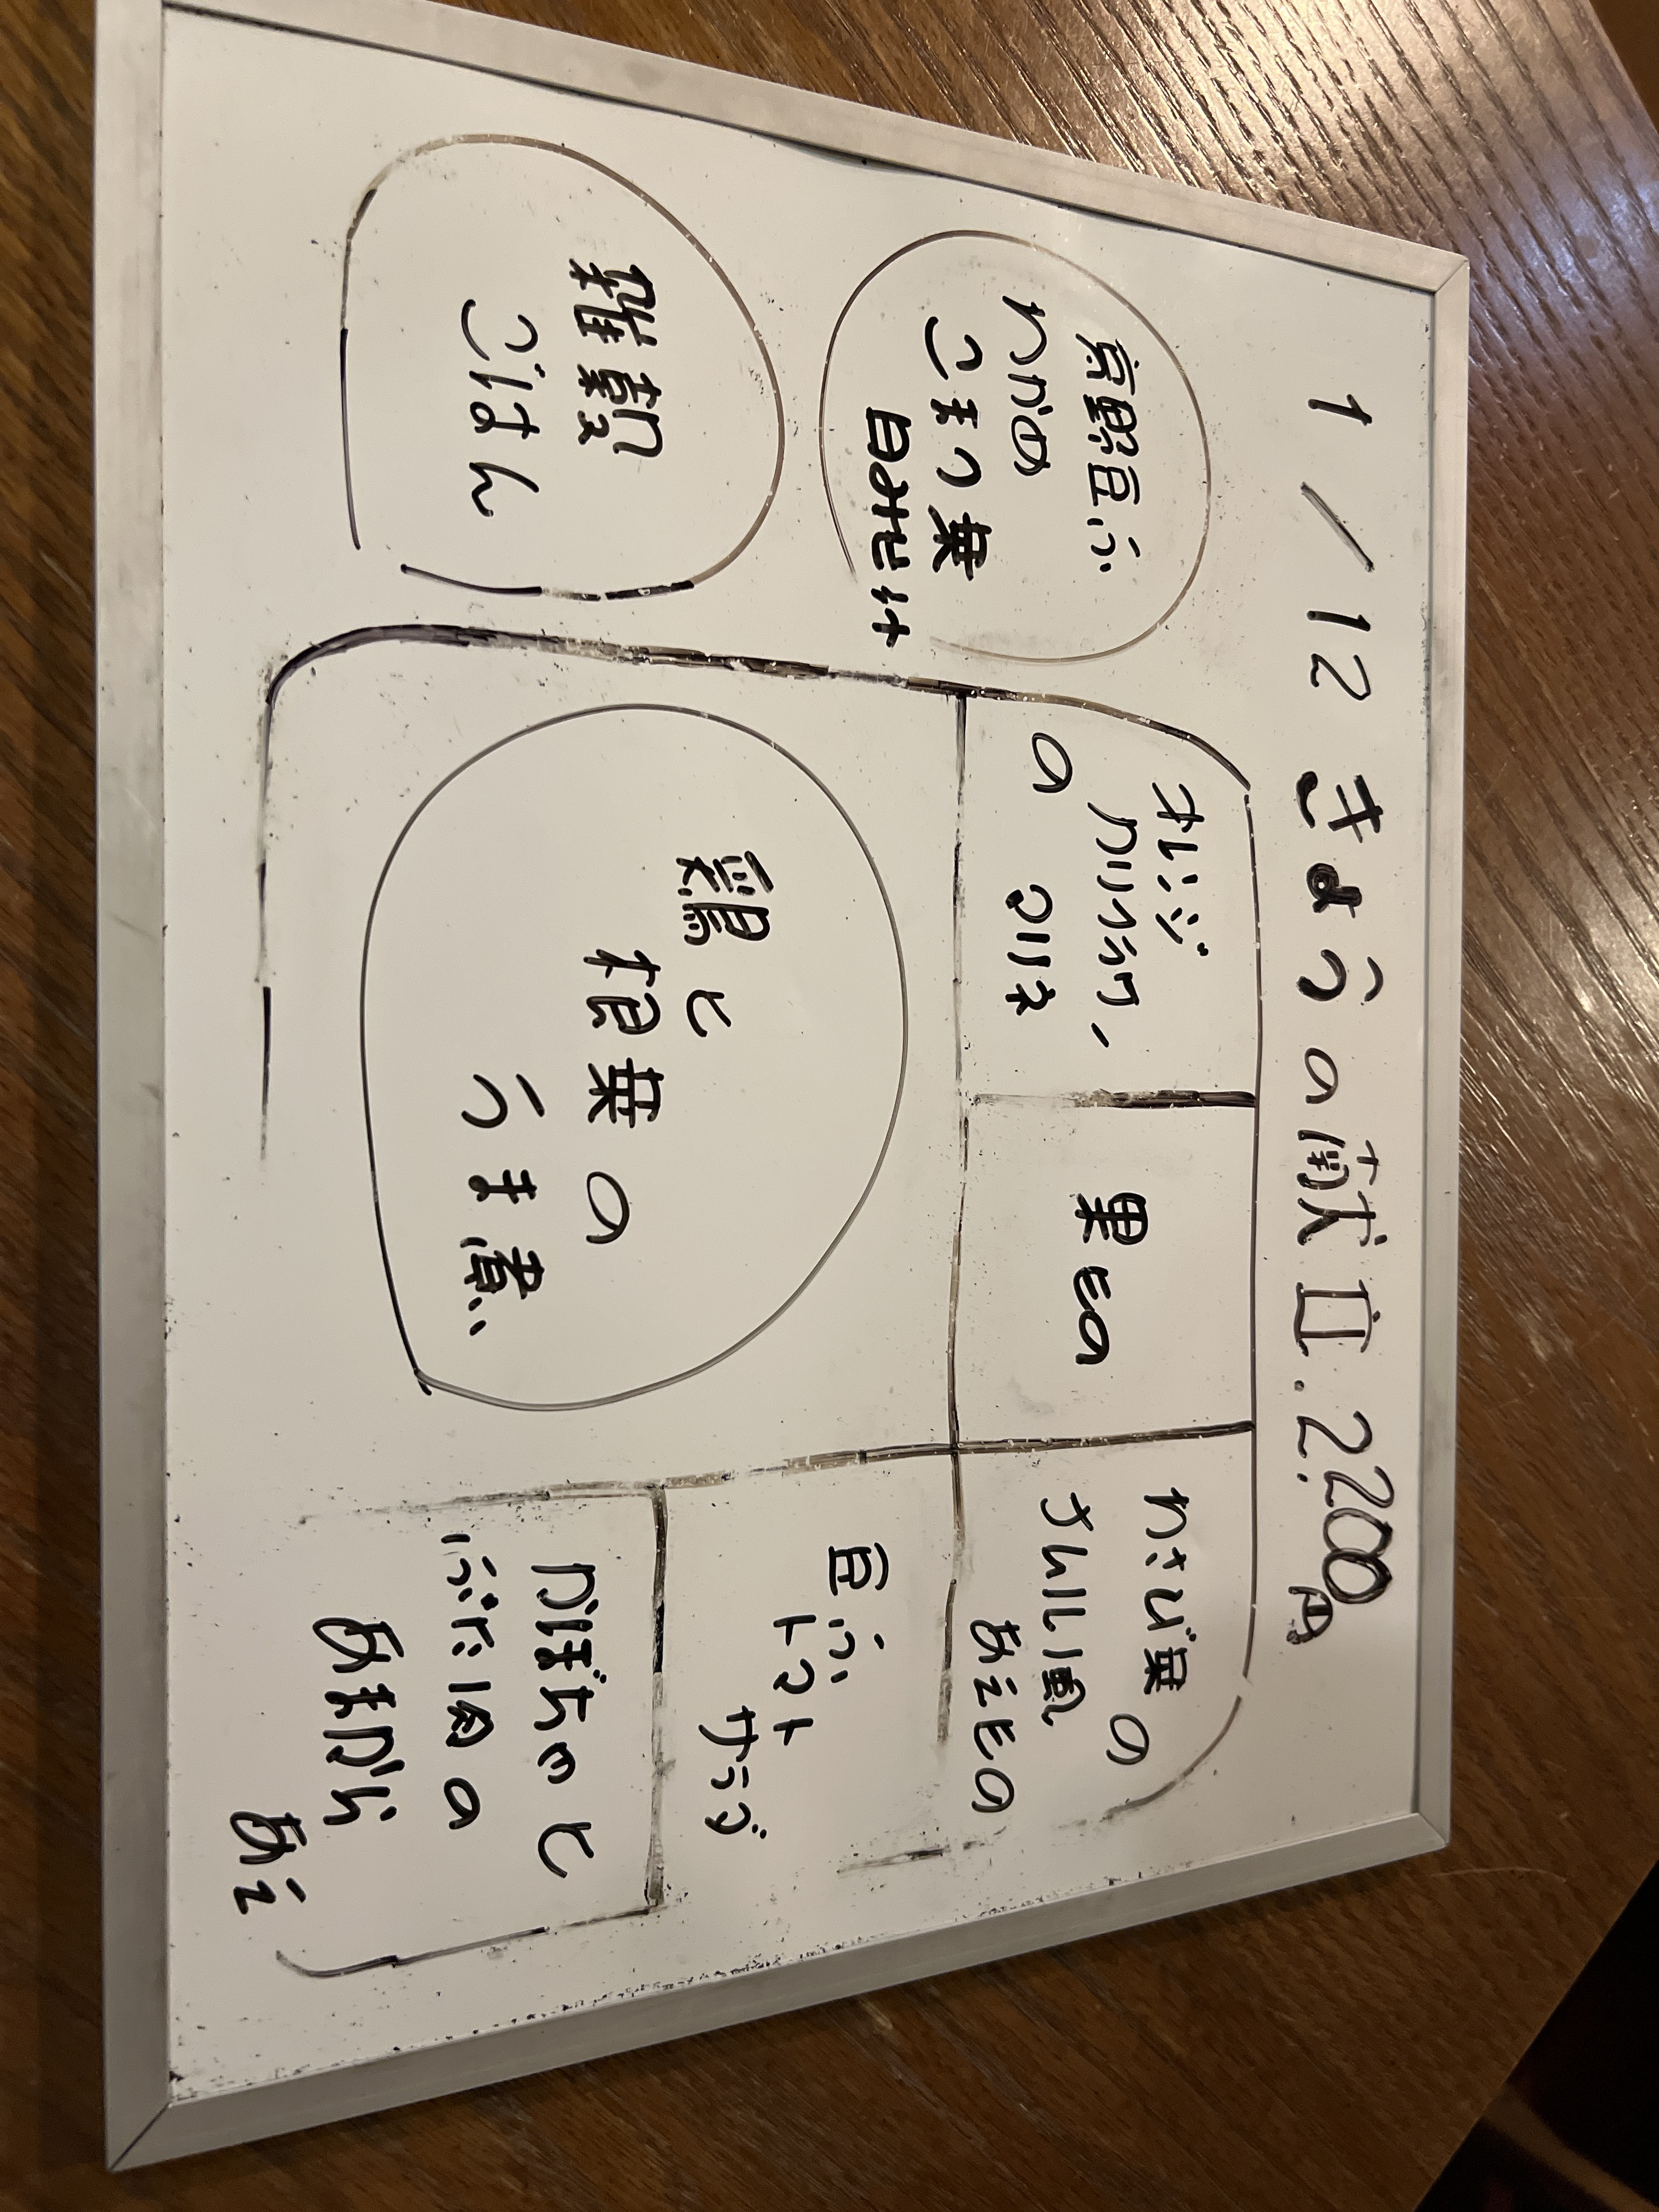 1/12 きょうの献立. 2.200円
京野豆ふ
わかめ
こまつ菜
白みそ汁
雑穀
ごはん
オレンジ
カリフラワー
の マリネ
果もの
わさび菜の
ナムル風
あえもの
鶏と
根菜の
うま煮
豆ふ
トマト
サラダ
かぼちゃと
ぶた肉の
あまから
あえ